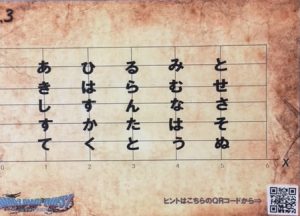 .3
6
とせさそぬ
みむなはう
るらんたと
ひはすかく
あきしすて
0 1 2 3 4 5 X
ヒントはこちらのQRコードから⇒